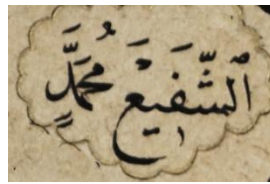 الشَّفِيعُ مُحَمَّدٌ